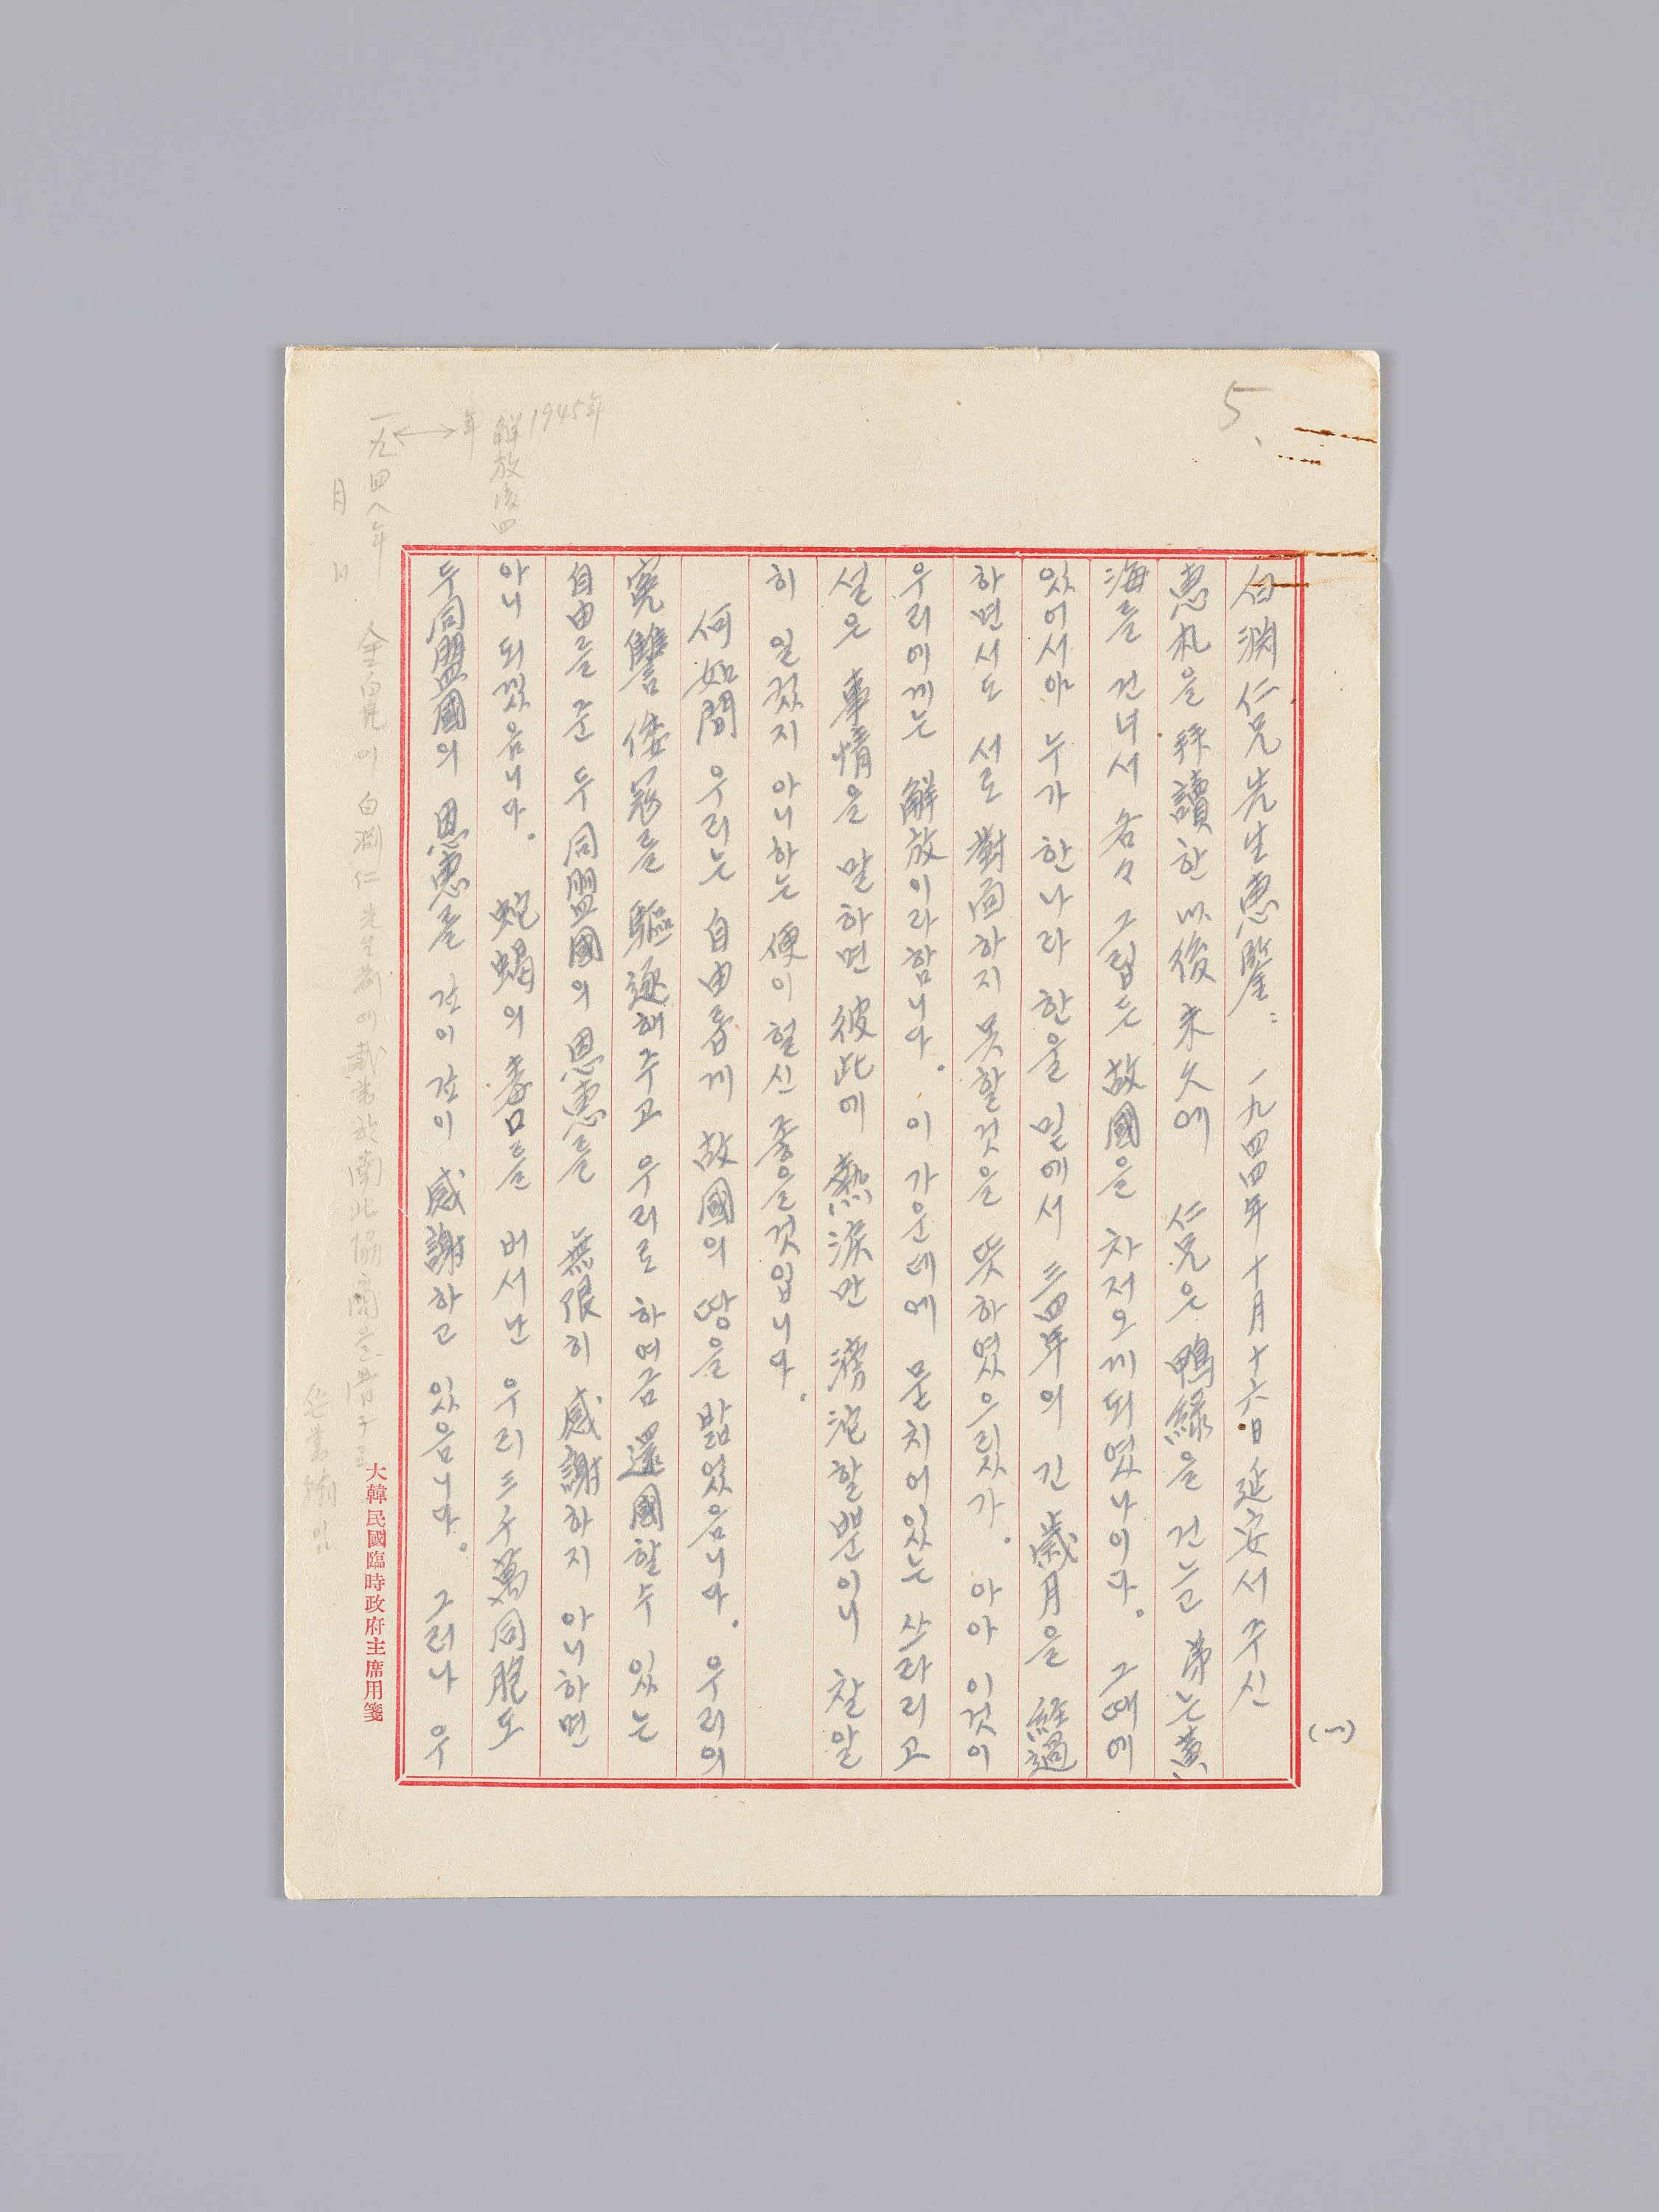 5、
(一)
白淵仁兄先生惠鑒： 一九四四年十月十六日 延安서 주신
惠札을 拜讀한 以後 未久에 仁兄은 鴨綠을 건늬고 弟는 黃
海를 건너서 各々 그립든 故國을 차저오게되였나이다。 그때에
있어서야 누가 한나라 한울 밑에서 三四年의 긴 歲月을 經過
하면서도 서로 對面하지 못할것을 뜻하였으릿가。 아아 이것이
우리에게는 解放이라함니다。 이 가운데에 묻치어있는 쓰라리고
설은 事情을 말하면 彼此에 熱淚만 滂沱할뿐이니 찰알
히 일컷지 아니하는 便이 헐신 좋을것입니다。
何如間 우리는 自由롭게 故國의 땅을 밟었음니다。 우리의
寃讐 倭寇를 驅逐해주고 우리로 하여금 還國할수 있는
自由를 준 두 同盟國의 恩惠를 無限히 感謝하지 아니하면
아니 되겠음니다。 蛇蝎의 毒口를 버서난 우리 三千萬同胞도
두同盟國의 恩惠를 깊이 깊이 感謝하고 있음니다。 그러나 우
解放後四年
1945年
一九四八年
月 日
金白凡이 白淵仁 先生前에 南北協商
大韓民國臨時政府主席用箋